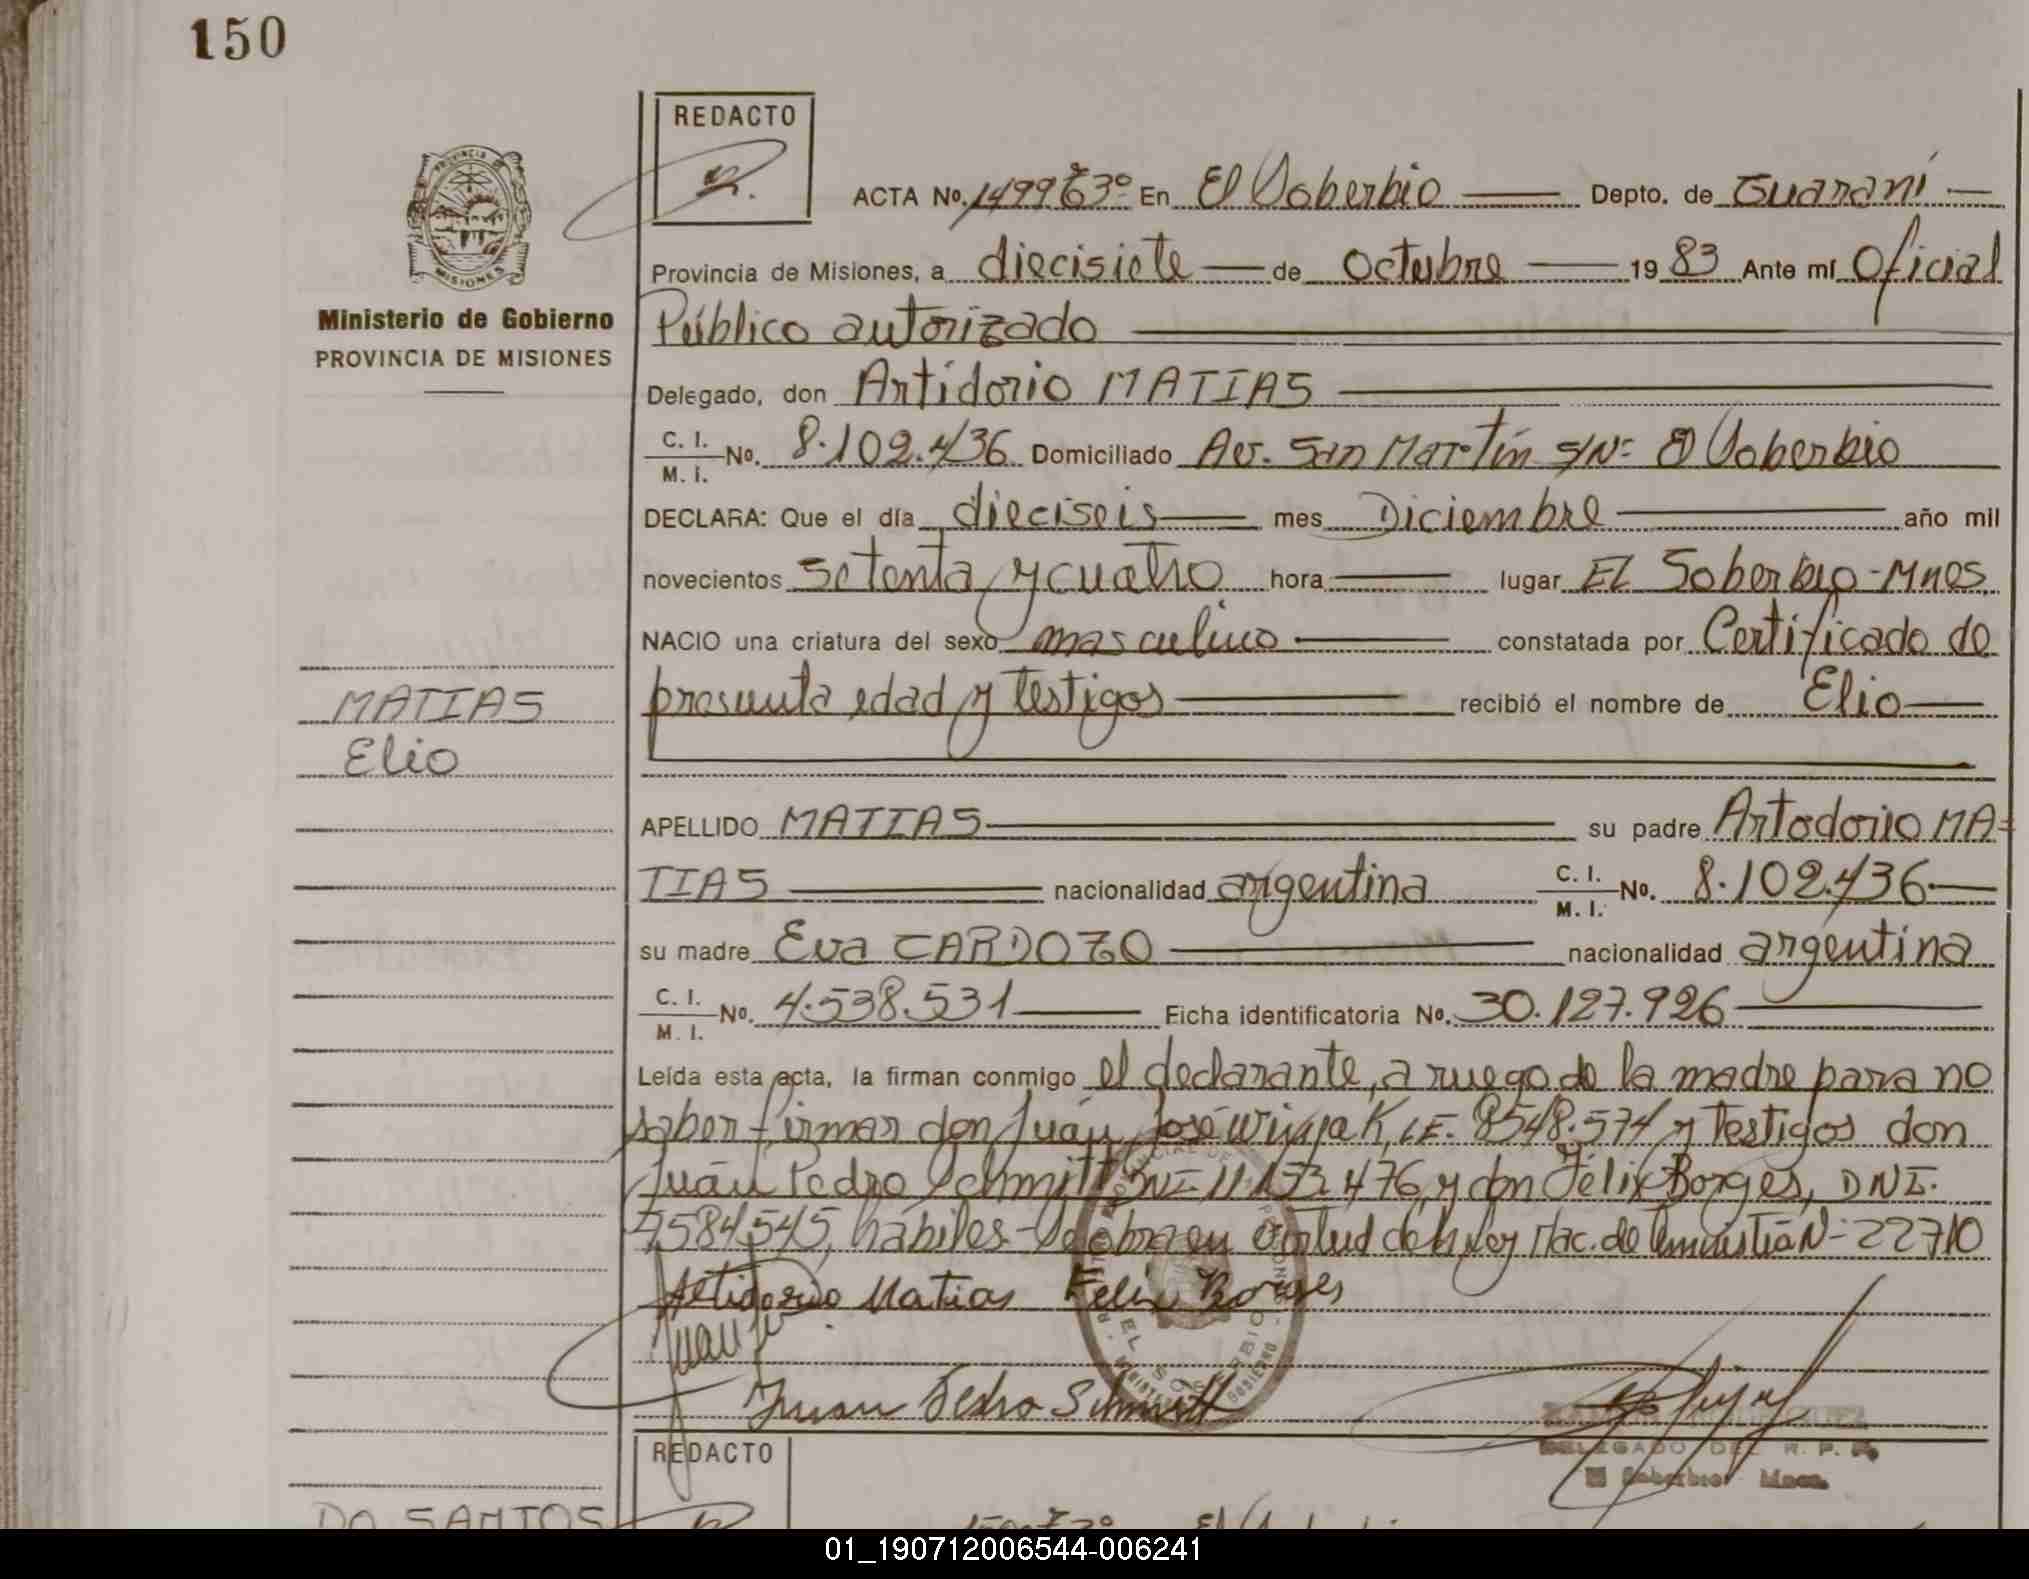 150
REDACTO
ACTA No. 1499 T 63º En El Soberbio Depto. de Guaraní
Provincia de Misiones, a diecisiete de Octubre 1983 Ante mí Oficial
Público autorizado
PROVINCIA DE
MISIONES
Ministerio de Gobierno
PROVINCIA DE MISIONES
Delegado, don Artidorio MATIAS
C. I.
M. I. No. 8.102.436 Domiciliado Av. San Martín S/Nº El Soberbio
DECLARA: Que el día dieciseis mes Diciembre año mil
novecientos setenta y cuatro hora lugar El Soberbio-Mnes
NACIO una criatura del sexo masculino constatada por Certificado de
presunta edad y testigos recibió el nombre de Elio
MATIAS
Elio
APELLIDO MATIAS su padre Artodorio MA=
TIAS nacionalidad argentina C. I.
M. I. No. 8.102.436
su madre Eva CARDOZO nacionalidad argentina
C. I.
M. I. No. 4.538.531 Ficha identificatoria No. 30.127.926
Leída esta acta, la firman conmigo el declarante, a ruego de la madre para no
saber firmar don Juán José K, LE. 8548.574 y testigos don
Juán Pedro Schmitt DNI 11.173.476, y don Félix Borges, DNI.
7584545, hábiles-Se labra en virtud de la Ley Nac. de Amnistía Nº 22710
Artidorio Matias Felix Borges
Juan
Juan Pedro Schmitt
EL SOBERBIO
DELEGADO DEL R. P. P.
El Soberbio Mnes.
REDACTO
DO SANTOS
01_190712006544-006241